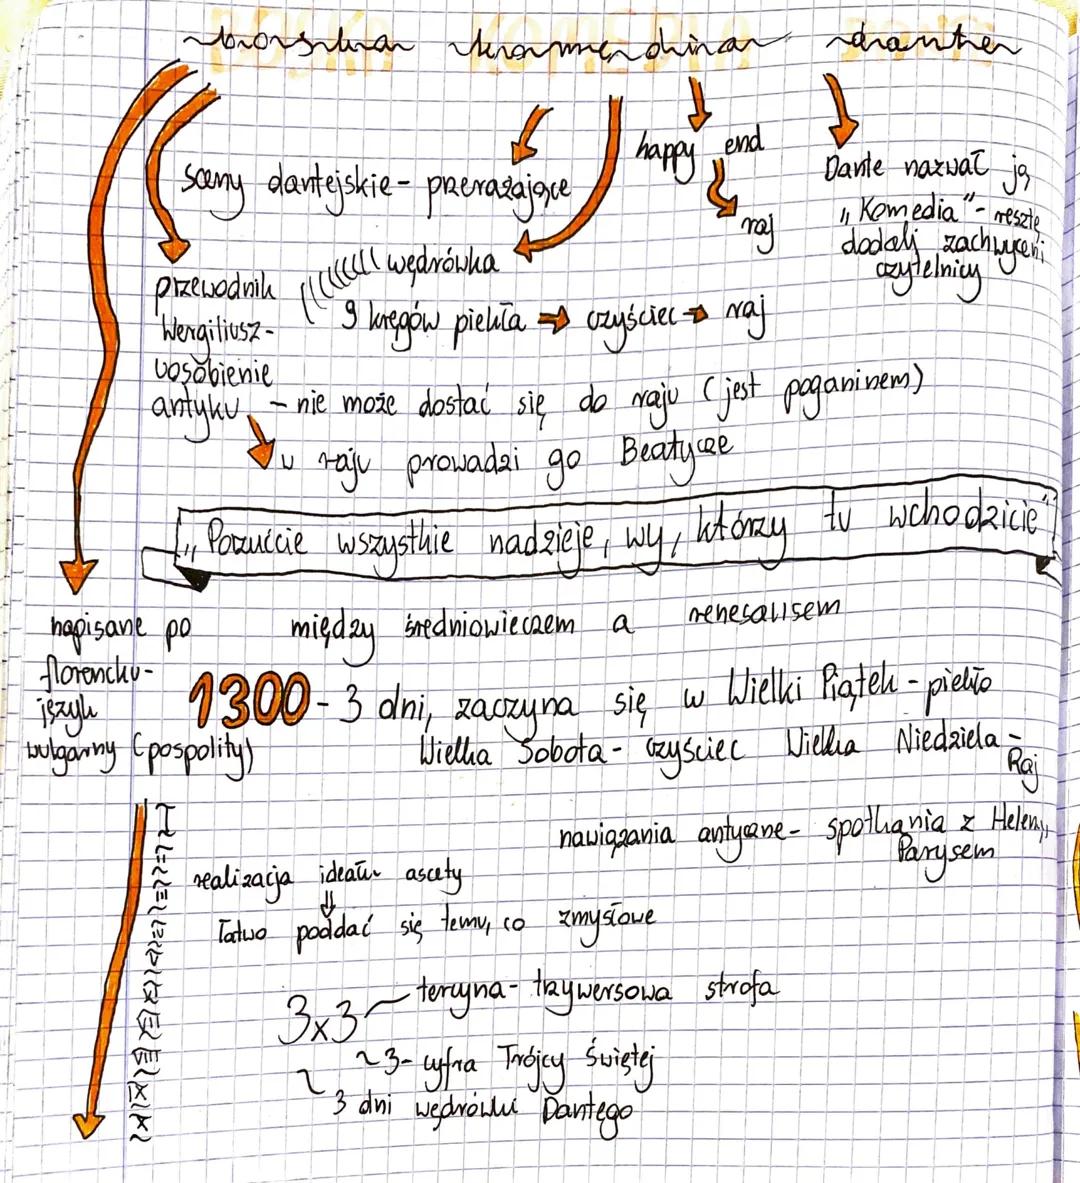 boska komedia dante
sceny dantejskie - przerażające
happy end
raj
Dante nazwał ją
„Komedia" - resztę
dodali zachwyceni
czytelnicy
wędrówka
9 kręgów piekła → czyściec → raj
przewodnik
Wergiliusz -
uosobienie
antyku - nie może dostać się do raju (jest poganinem)
w raju prowadzi go Beatycze
„Porzućcie wszystkie nadzieje, wy, którzy tu wchodzicie"
napisane po
florencku -
język
wulgarny (pospolity)
między średniowieczem a renesansem
1300 - 3 dni, zaczyna się w Wielki Piątek - piekło
Wielka Sobota - czyściec Wielka Niedziela -
Raj
nawiązania antyczne - spotkania z Heleną,
Parysem
realizacja ideału ascety
łatwo poddać się temu, co zmysłowe
3x3 tercyna - trzywersowa strofa
~3 - cyfra Trójcy Świętej
~ 3 dni wędrówki Dantego